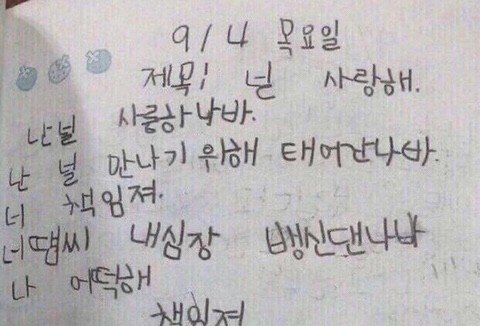 9/4 목요일
제목: 널 사랑해.
난널 사릉하나바.
난 널 만나기 위해 태어간나바.
너 책임져.
너떔씨 내심장 뱅신댄나바
나 어떡해
책임져